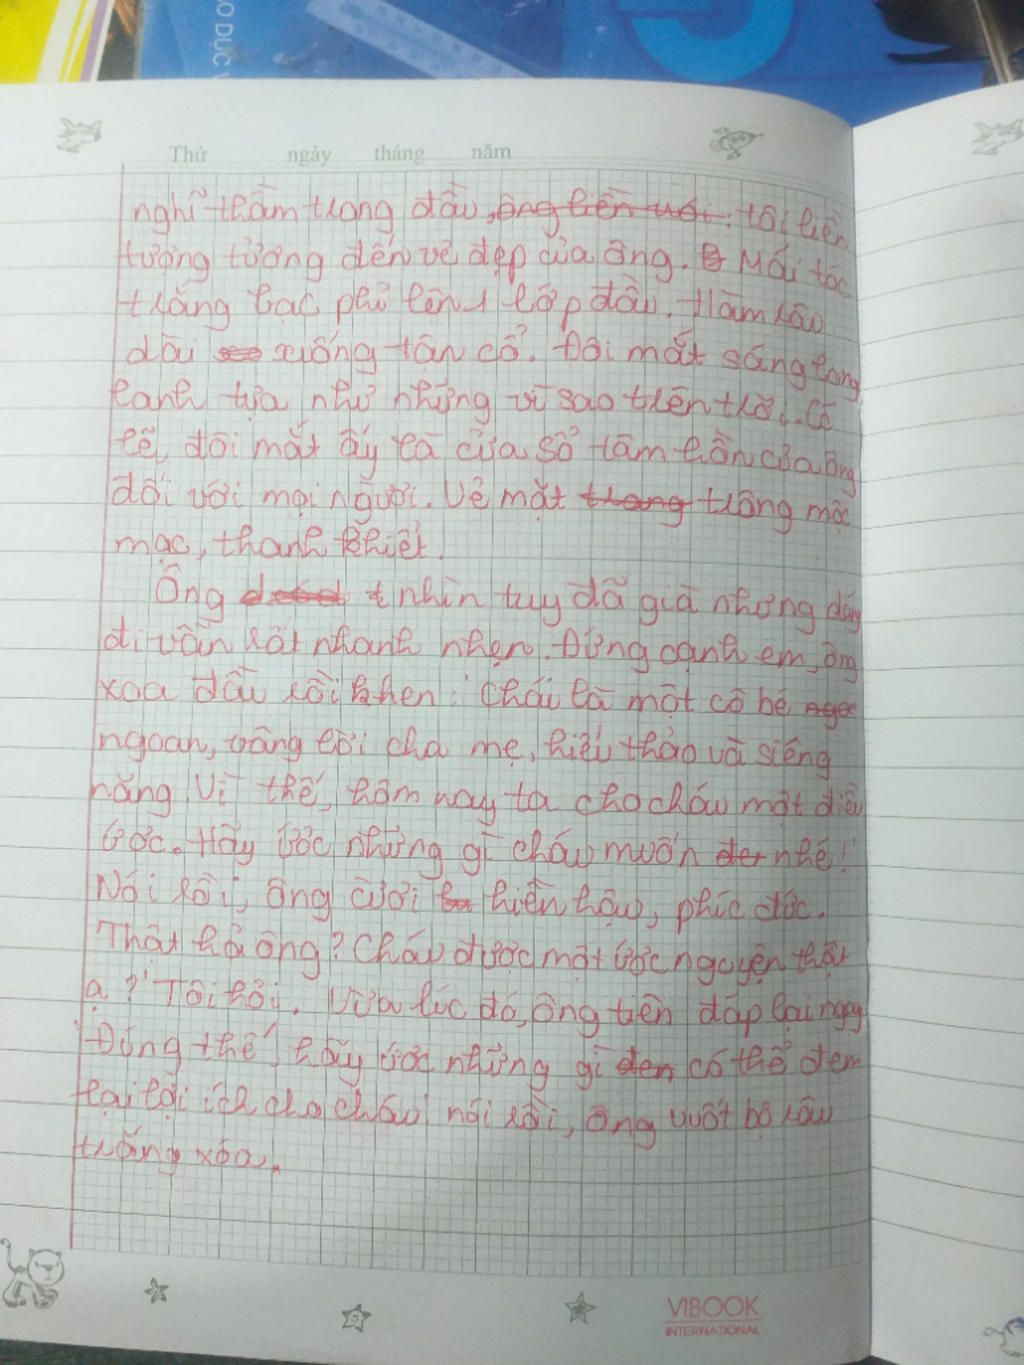 O DỤC V
Thứ ngày tháng năm
nghĩ thầm trong đầu, ông liền nói: tôi liền
tưởng tượng đến vẻ đẹp của ông. Mái tóc
trắng bạc phủ lên 1 lớp đầu. Hàm râu
dài xuống tận cổ. Đôi mắt sáng long
lanh tựa như những vì sao trên trời. Có
lẽ, đôi mắt ấy là cửa sổ tâm hồn của ông
đối với mọi người. Vẻ mặt trong trông mộc
mạc, thanh khiết.
Ông nhìn tuy đã già nhưng dáng
đi vẫn rất nhanh nhẹn. Đứng cạnh em, ông
xoa đầu rồi khen: "Cháu là một cô bé
ngoan, vâng lời cha mẹ, hiếu thảo và siêng
năng. Vì thế, hôm nay ta cho cháu một điều
ước. Hãy ước những gì cháu muốn nhé!"
Nói rồi, ông cười hiền hậu, phúc đức.
Thật hả ông? Cháu được một ước nguyện thật
ạ?" Tôi hỏi. Vừa lúc đó, ông tiên đáp lại ngay
"Đúng thế, hãy ước những gì đem có thể đem
lại lợi ích cho cháu" nói rồi, ông vuốt bộ râu
trắng xóa.
VIBOOK
INTERNATIONAL